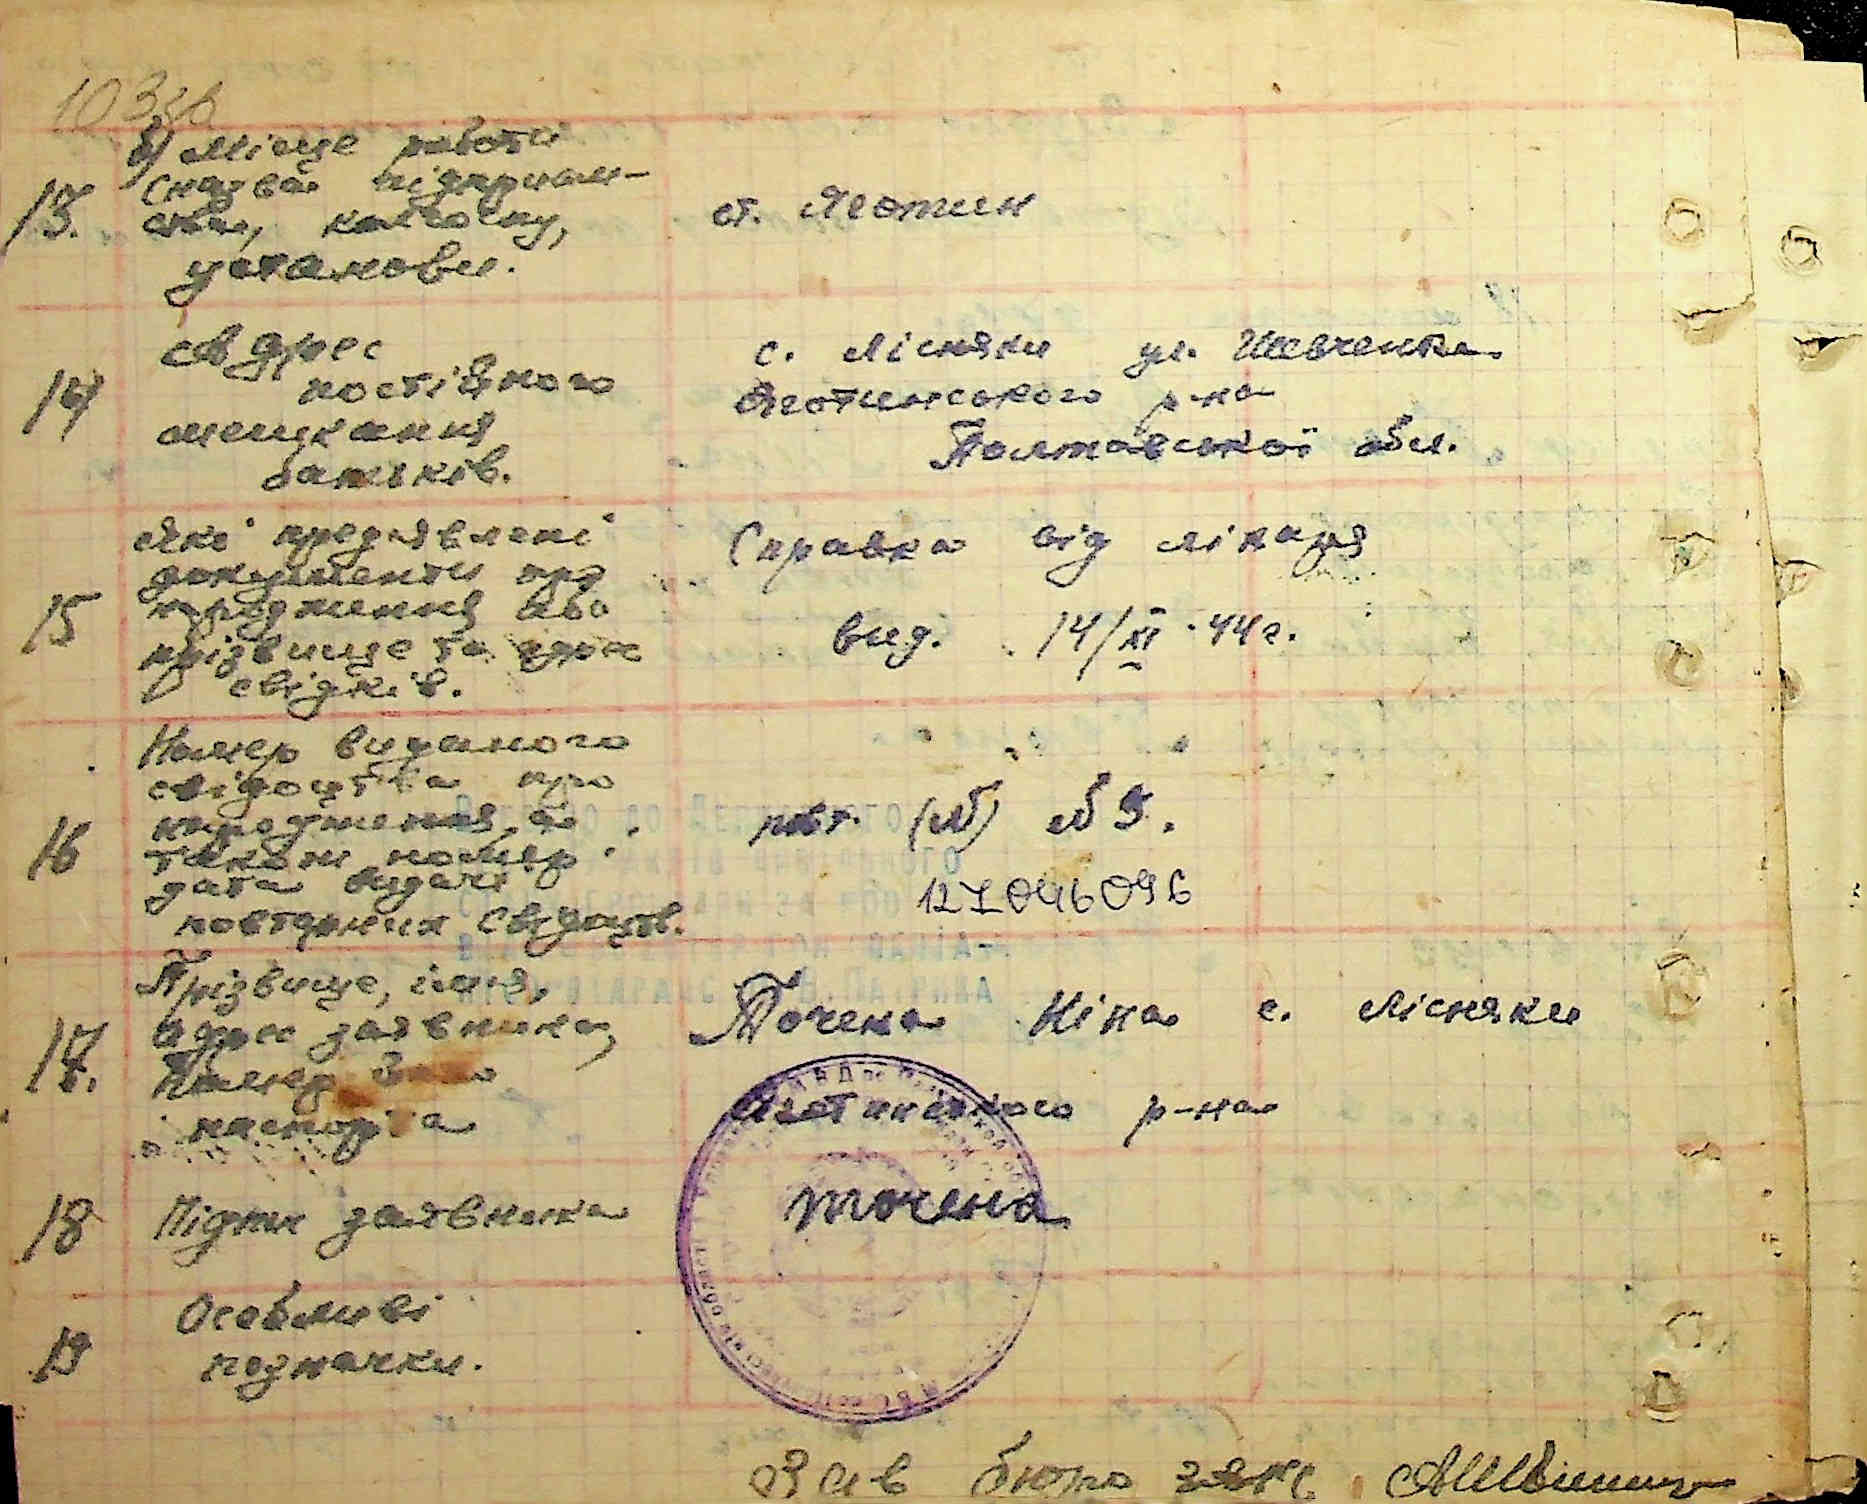 103зв
13. в) Місце роботи
(назва підприєм-
ства, колгоспу,
установи.
ст. Яготин
14 Адрес
постійного
мешкання
батьків.
с. Лісняки ул. Шевченка
Яготинського р-на
Полтавської обл.
15 Які предявлені
документи про
народження або
прізвище та адрес
свідків.
Справка від лікаря
вид. 14/XI 44 г.
16 Номер виданого
свідоцтва про
народження, а
також номер
дата видачі
повторних свідоцтв.
повт. (№) № 9.
127046096
17. Прізвище, імя,
адрес заявника,
Номер його
паспорта
Точена Ніна с. Лісняки
Яготинського р-на
18 Підпис заявника
точена
19 Особливі
позначки.
Зав бюро загс